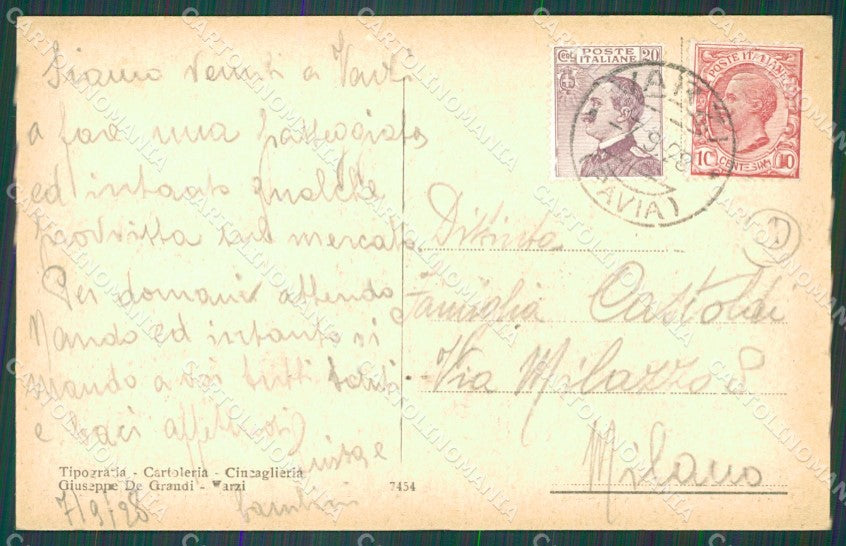 Siamo venuti a Varzi
a fare una passeggiata
ed intanto qualche
provvista sul mercato
Per domani attendo
Nando ed intanto vi
mando a voi tutti saluti
e baci affettuosi
e
bambini
7/9/28
Tipografia - Cartoleria - Cincaglieria
Giuseppe De Grandi - Varzi
7454
CENT. POSTE ITALIANE 20
POSTE ITALIANE
10 CENTESIMI 10
VARZI
9.28
(PAVIA)
1
Distinta
Famiglia Castoldi
Via Milazzo 8
Milano
CARTOLINOMANIA